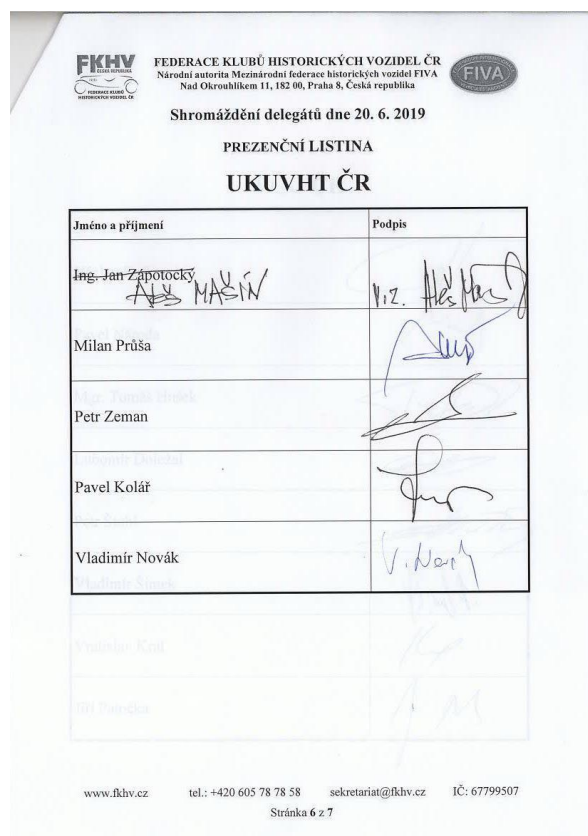 FKHV
ČESKÁ REPUBLIKA
FEDERACE KLUBŮ
HISTORICKÝCH VOZIDEL ČR
FEDERACE KLUBŮ HISTORICKÝCH VOZIDEL ČR
Národní autorita Mezinárodní federace historických vozidel FIVA
Nad Okrouhlíkem 11, 182 00, Praha 8, Česká republika
FIVA
Shromáždění delegátů dne 20. 6. 2019
PREZENČNÍ LISTINA
UKUVHT ČR
Jméno a příjmení Podpis
Ing. Jan Zápotocký
ALEŠ MAŠÍN
Milan Průša
Petr Zeman
Pavel Kolář
Vladimír Novák
Vladimír Šimek
www.fkhv.cz tel.: +420 605 78 78 58 sekretariat@fkhv.cz IČ: 67799507
Stránka 6 z 7